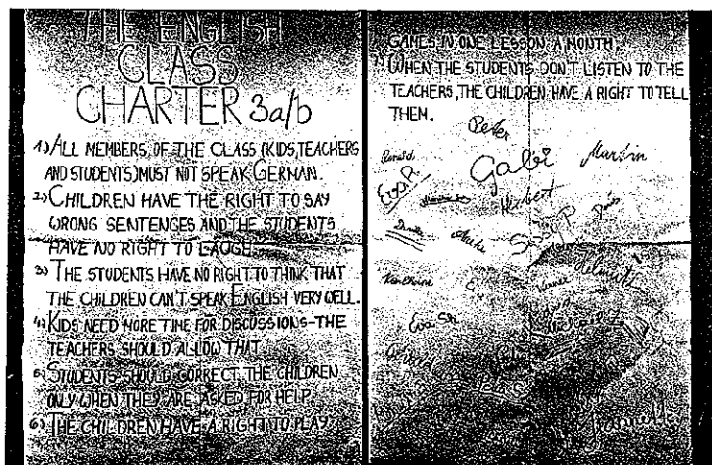 THE ENGLISH
CLASS
CHARTER 3a/b
1) ALL MEMBERS OF THE CLASS (KIDS, TEACHERS
AND STUDENTS) MUST NOT SPEAK GERMAN.
2) CHILDREN HAVE THE RIGHT TO SAY
WRONG SENTENCES AND THE STUDENTS
HAVE NO RIGHT TO LAUGH.
3) THE STUDENTS HAVE NO RIGHT TO THINK THAT
THE CHILDREN CAN'T SPEAK ENGLISH VERY WELL.
4) KIDS NEED MORE TIME FOR DISCUSSIONS-THE
TEACHERS SHOULD ALLOW THAT
5) STUDENTS SHOULD CORRECT THE CHILDREN
ONLY WHEN THEY ARE ASKED FOR HELP.
6) THE CHILDREN HAVE A RIGHT TO PLAY
GAMES IN ONE LESSON A MONTH.
WHEN THE STUDENTS DON'T LISTEN TO THE
TEACHERS, THE CHILDREN HAVE A RIGHT TO TELL
THEM.
Peter
Ronald
Gabi
Martin
Eva R
Hubert
Anke
Helmut
Eva St